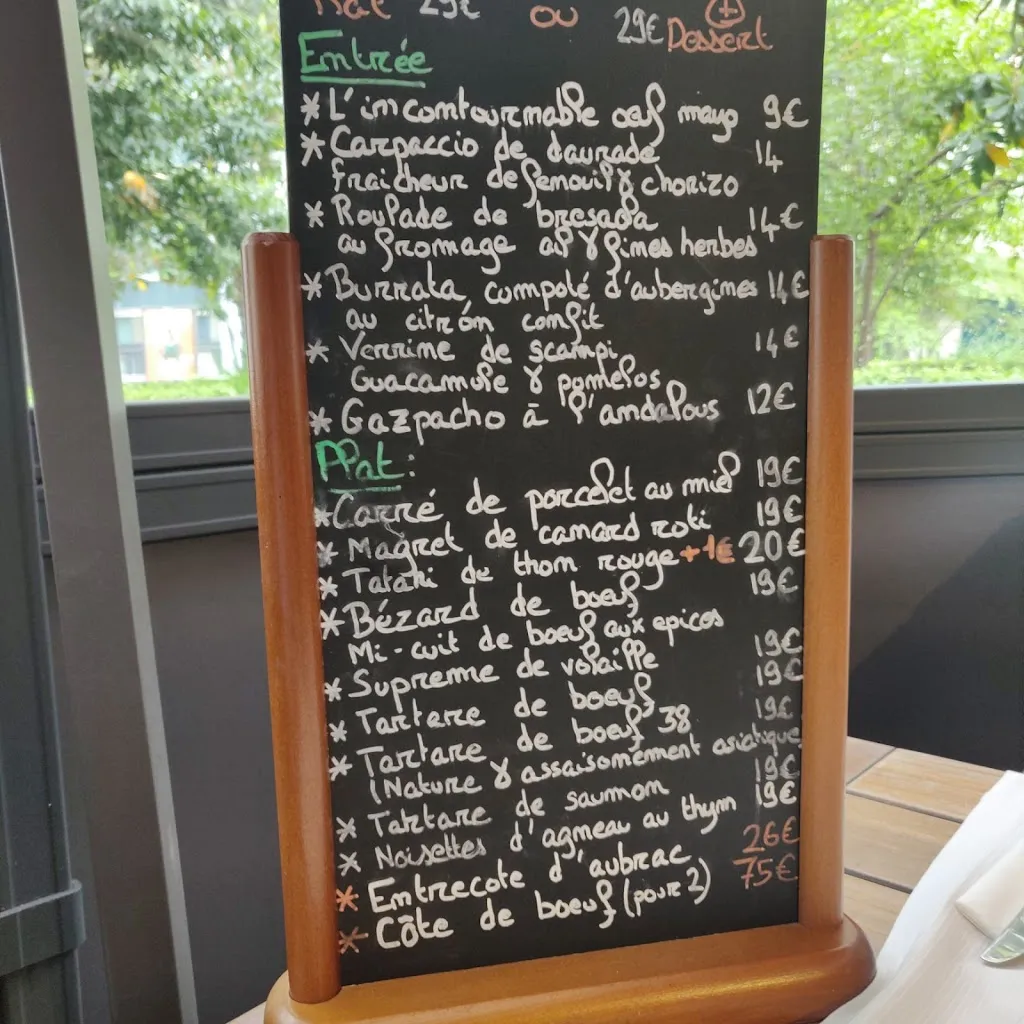 29€ ou 29€ Dessert
Entrée
* L'incontournable oeuf mayo 9€
* Carpaccio de daurade 14
fraicheur de fenouil & chorizo
* Roulade de bresaola 14€
au fromage ail & fines herbes
* Burrata, compoté d'aubergines 14€
au citron confit
* Verrine de scampi 14€
Guacamole & pomelos
* Gazpacho à l'andalous 12€
Plat:
* Carré de porcelet au miel 19€
* Magret de canard roti 19€
* Tataki de thon rouge +1€ 20€
* Bézard de boeuf 19€
Mi-cuit de boeuf aux epices
* Supreme de volaille 19€
* Tartare de boeuf 19€
* Tartare de boeuf 38 19€
(Nature & assaisonement asiatique
* Tartare de saumon 19€
* Noisettes d'agneau au thym 19€
* Entrecote d'aubrac 26€
* Côte de boeuf (pour 2) 75€